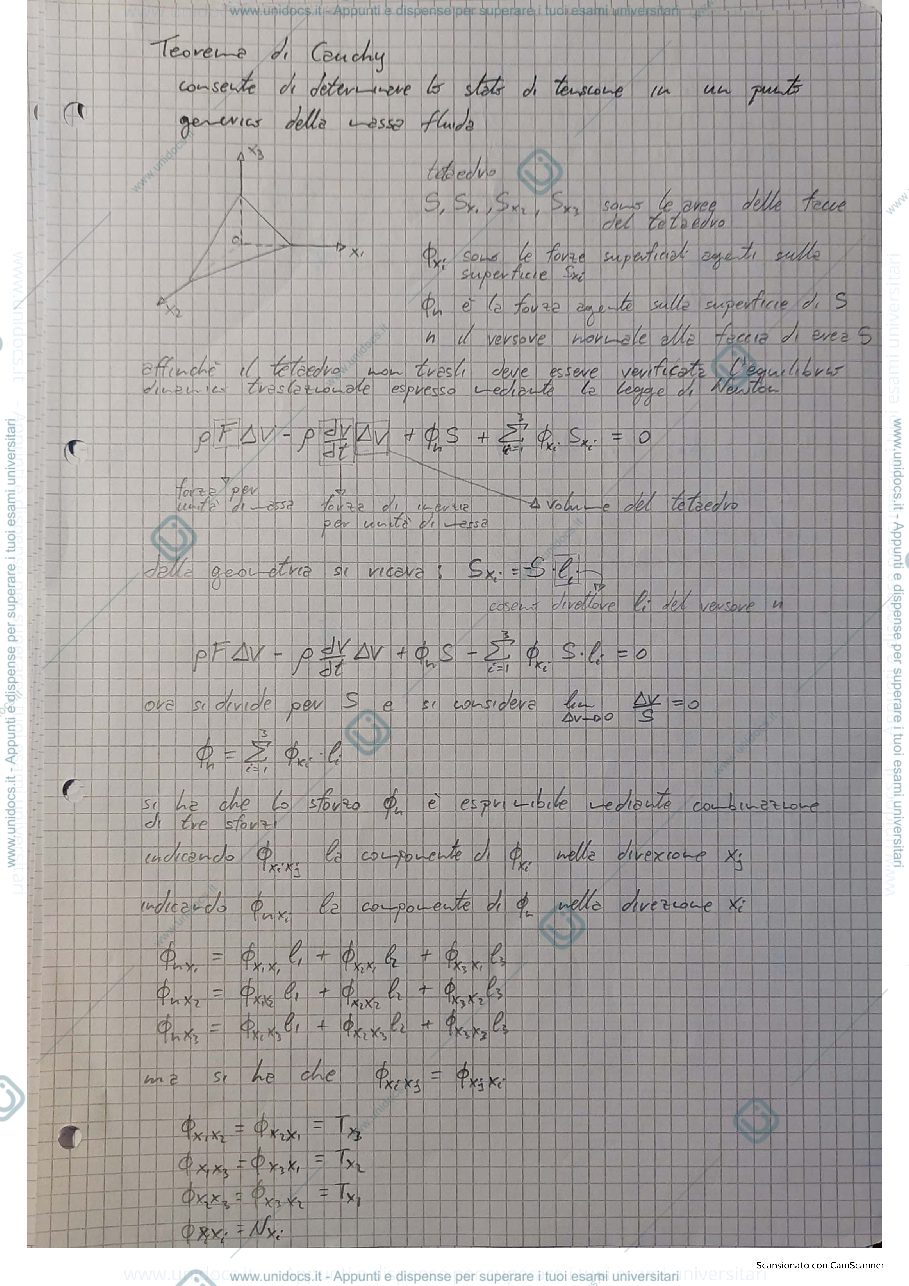 www.unidocs.it - Appunti e dispense per superare i tuoi esami universitari
Teorema di Cauchy
consente di determinare lo stato di tensione in un punto
generico della massa fluida
x3
0
x1
x2
tetaedro
S, Sx1, Sx2, Sx3 sono le aree delle facce
del tetaedro
ϕxi sono le forze superficiali agenti sulla
superficie Sxi
ϕn è la forza agente sulla superficie di S
n il versore normale alla faccia di area S
affinchè il tetaedro non trasli deve essere verificata l'equilibrio
dinamico traslazionale espresso mediante la legge di Newton
ρFΔV - ρ dv/dt ΔV + ϕnS + Σ(i=1→3) ϕxi Sxi = 0
forza per
unità di massa
forza di inerzia
per unità di massa
volume del tetaedro
dalla geometria si ricava: Sxi = -S · li
coseno direttore li del versore n
ρFΔV - ρ dv/dt ΔV + ϕnS - Σ(i=1→3) ϕxi S·li = 0
ora si divide per S e si considera lim ΔV→0 ΔV/S = 0
ϕn = Σ(i=1→3) ϕxi · li
si ha che lo sforzo ϕn è esprimibile mediante combinazione
di tre sforzi
indicando ϕxixj la componente di ϕxi nella direzione xj
indicando ϕnxi la componente di ϕn nella direzione xi
ϕnx1 = ϕx1x1 l1 + ϕx2x1 l2 + ϕx3x1 l3
ϕnx2 = ϕx1x2 l1 + ϕx2x2 l2 + ϕx3x2 l3
ϕnx3 = ϕx1x3 l1 + ϕx2x3 l2 + ϕx3x3 l3
ma si ha che ϕxixj = ϕxjxi
ϕx1x2 = ϕx2x1 = Tx3
ϕx1x3 = ϕx3x1 = Tx2
ϕx2x3 = ϕx3x2 = Tx1
ϕxixi = Nxi
Scansionato con CamScanner
www.unidocs.it - Appunti e dispense per superare i tuoi esami universitari
www.unidocs.it - Appunti e dispense per superare i tuoi esami universitari
www.unidocs.it - Appunti e dispense per superare i tuoi esami universitari